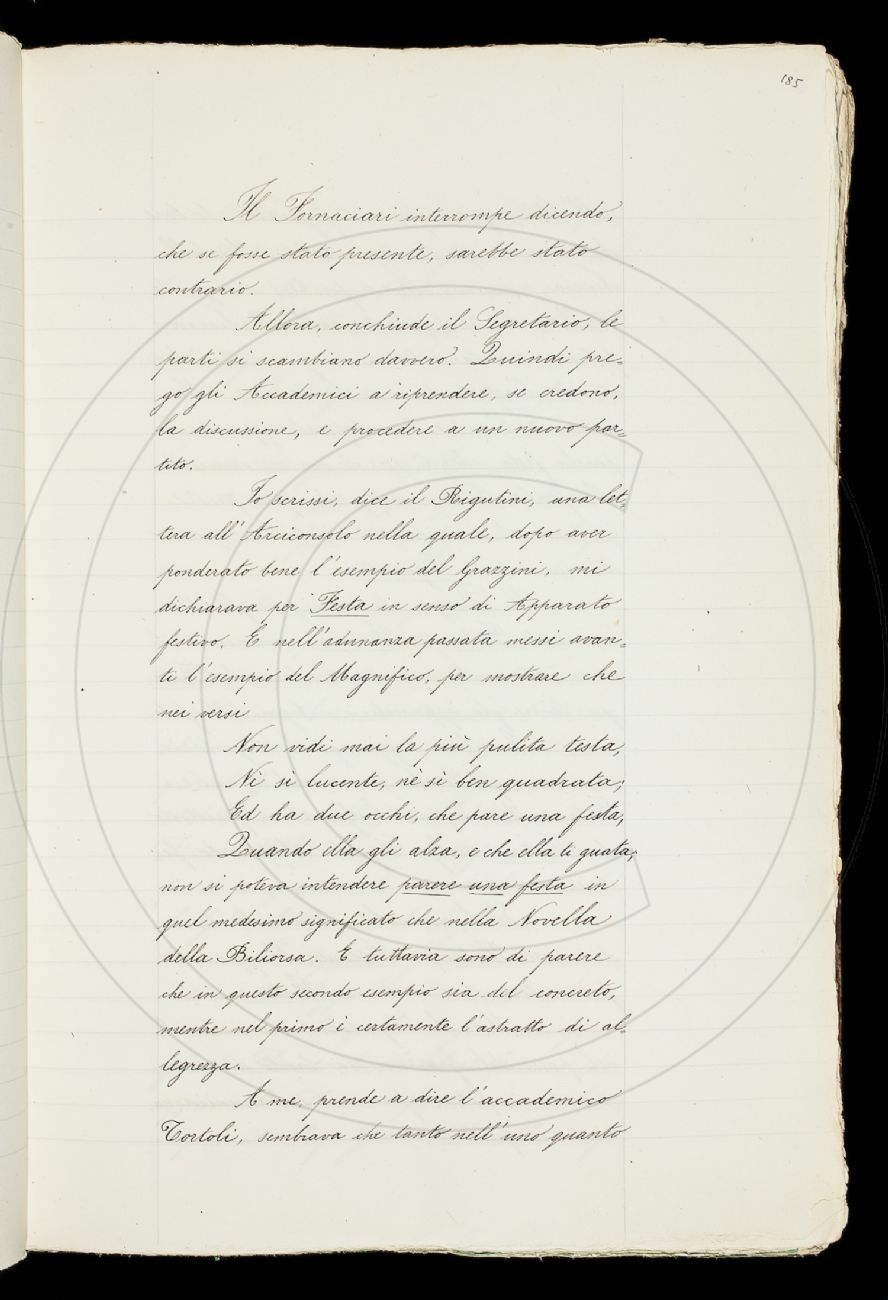 185
Il Fornaciari interrompe dicendo,
che se fosse stato presente, sarebbe stato
contrario.
Allora, conchiude il Segretario, le
parti si scambiano davvero. Quindi pre=
go gli Accademici a riprendere, se credono,
la discussione, e procedere a un nuovo par=
tito.
Io scrissi, dice il Rigutini, una let=
tera all'Arciconsolo nella quale, dopo aver
ponderato bene l'esempio del Grazzini, mi
dichiarava per Festa in senso di Apparato
festivo. E nell'adunanza passata messi avan=
ti l'esempio del Magnifico, per mostrare che
nei versi
Non vidi mai la più pulita testa,
Nè sì lucente, nè sì ben quadrata;
Ed ha due occhi, che pare una festa,
Quando ella gli alza, e che ella ti guata;
non si poteva intendere parere una festa in
quel medesimo significato che nella Novella
della Biliorsa. E tuttavia sono di parere
che in questo secondo esempio sia del concreto,
mentre nel primo è certamente l'astratto di al=
legrezza.
A me, prende a dire l'accademico
Tortoli, sembrava che tanto nell'uno quanto